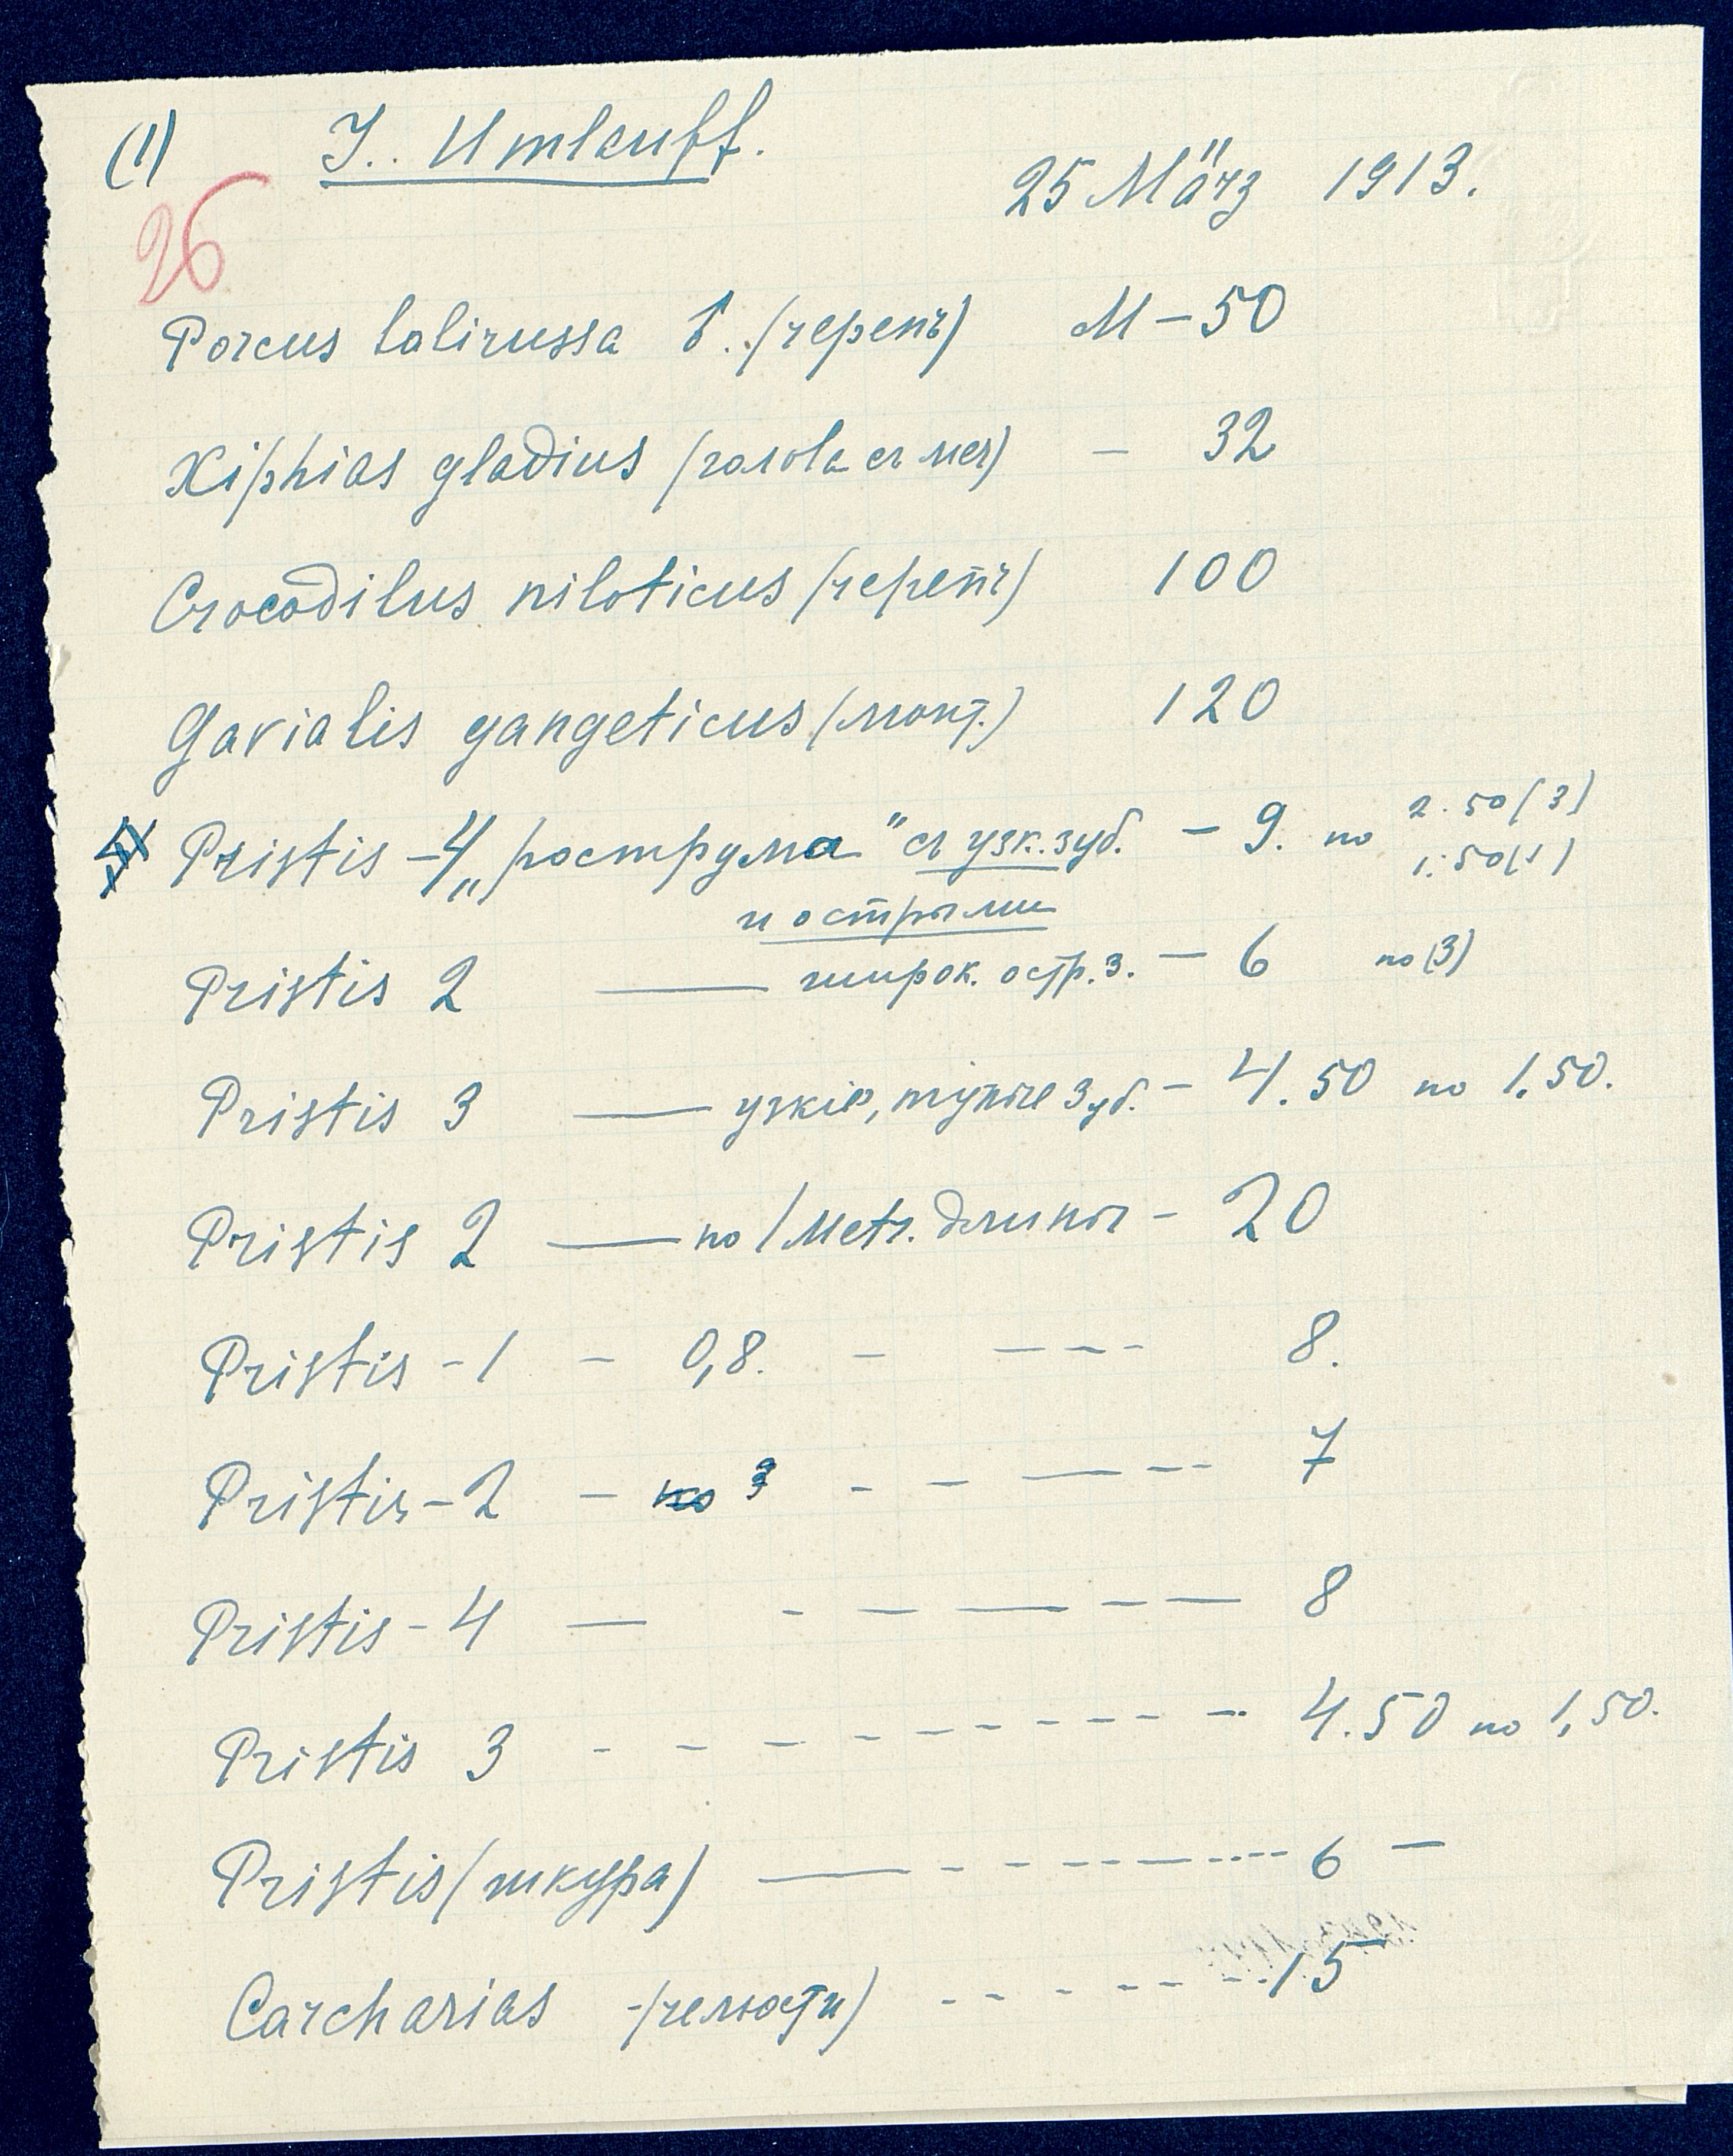 (1) J. Umlauff.
25 März 1913.
26
Porcus babirussa ♂. (черепъ) M — 50
Xiphias gladius (голова съ меч) — 32
Crocodilus niloticus (черепъ) 100
Gavialis gangeticus (монт.) 120
Pristis — 4 „рострума" съ узк. зуб. — 9. по 2.50 (3)
1.50 (1)
и острыми
Pristis 2 — широк. остр. з. — 6 по (3)
Pristis 3 — узкіе, тупые зуб. — 4.50 по 1.50.
Pristis 2 — по 1 Metr. длины — 20
Pristis - 1 — 0,8. — — — — 8.
Pristis - 2 — по 3 - — — — - 7
Pristis - 4 — - — — — — 8
Pristis 3 - - - - - - - - - - 4.50 по 1,50.
Pristis (шкура) — - - - - — - - - 6 —
Carcharias - (челюсти) - - - - - - 15